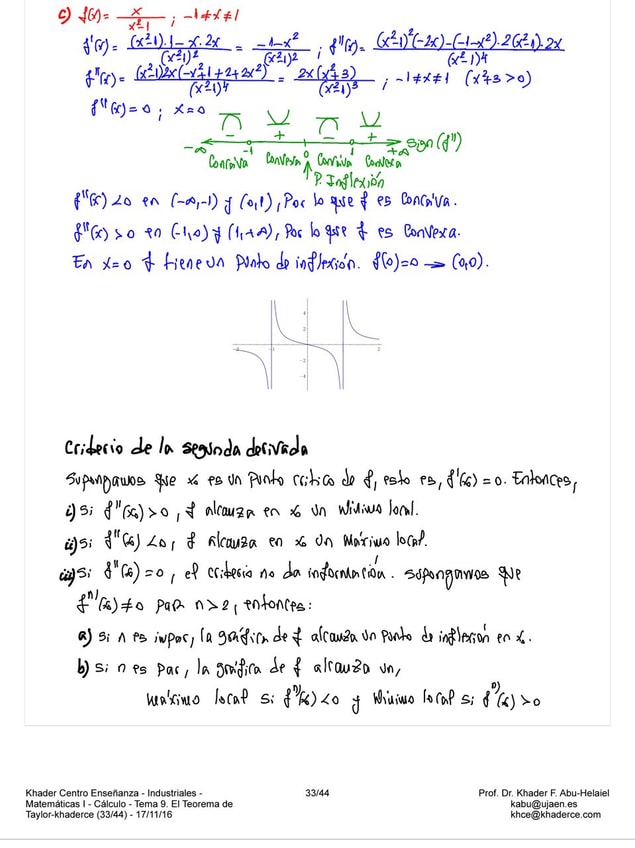 c) f(x) = x / (x²-1) ; -1 ≠ x ≠ 1
f'(x) = ((x²-1).1 - x.2x) / (x²-1)² = (-1-x²) / (x²-1)² ; f''(x) = ((x²-1)²(-2x) - (-1-x²).2(x²-1).2x) / (x²-1)4
f''(x) = ((x²-1)2x(-x²+1+2+2x²)) / (x²-1)4 = 2x(x²+3) / (x²-1)³ ; -1 ≠ x ≠ 1 (x²+3 > 0)
f''(x) = 0 ; x = 0
+ +
-∞ -1 0 1 +∞ Sign(f'')
Concáva Convexa Concáva Convexa
P. Inflexión
f''(x) < 0 en (-∞,-1) y (0,1), Por lo que f es Concáva.
f''(x) > 0 en (-1,0) y (1,+∞), Por lo que f es Convexa.
En x=0 f tiene un punto de inflexión. f(0)=0 → (0,0).
4
2
-2 -1 1 2
-2
-4
Criterio de la segunda derivada
Supongamos que x₀ es un punto crítico de f, esto es, f'(x₀) = 0. Entonces,
i) Si f''(x₀) > 0, f alcanza en x₀ un Mínimo local.
ii) Si f''(x₀) < 0, f alcanza en x₀ un Máximo local.
iii) Si f''(x₀) = 0, el criterio no da información. Supongamos que
fⁿ⁾(x₀) ≠ 0 para n > 2, entonces:
a) Si n es impar, la gráfica de f alcanza un punto de inflexión en x₀.
b) Si n es par, la gráfica de f alcanza un,
máximo local si fⁿ⁾(x₀) < 0 y Mínimo local si fⁿ⁾(x₀) > 0
Khader Centro Enseñanza - Industriales -
Matemáticas I - Cálculo - Tema 9. El Teorema de
Taylor-khaderce (33/44) - 17/11/16
33/44
Prof. Dr. Khader F. Abu-Helaiel
kabu@ujaen.es
khce@khaderce.com